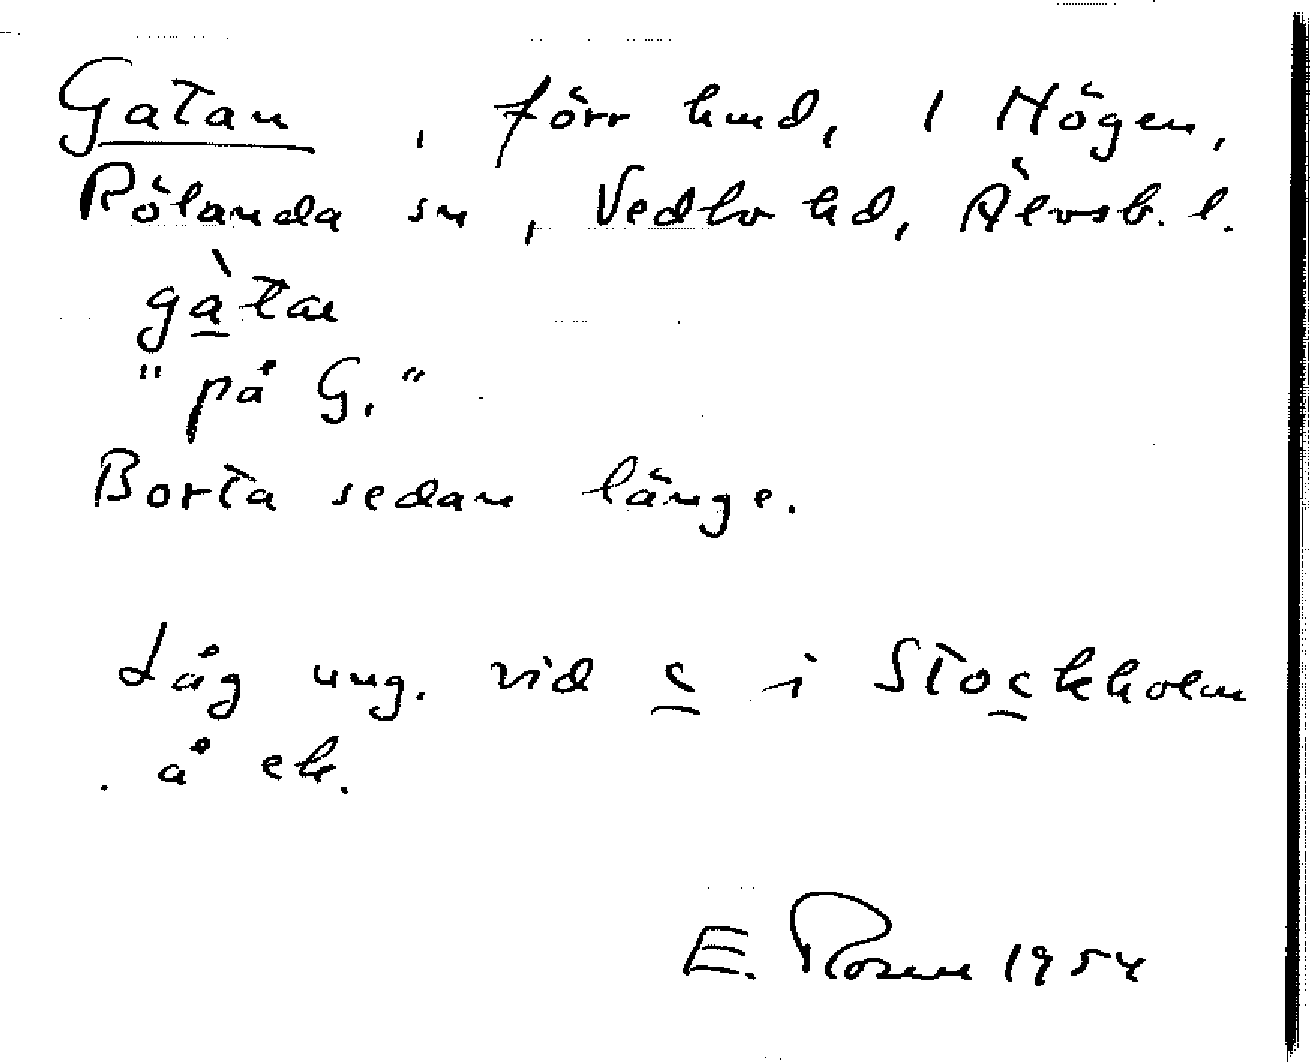 Gatan, förr hmd, 1 Högen,
Rölanda sn, Vedbo hd, Älvsb. l.
gàtan
"på G."
Borta sedan länge.
Låg ung. vid c i Stockholm
å ek.
E. Rosen 1954